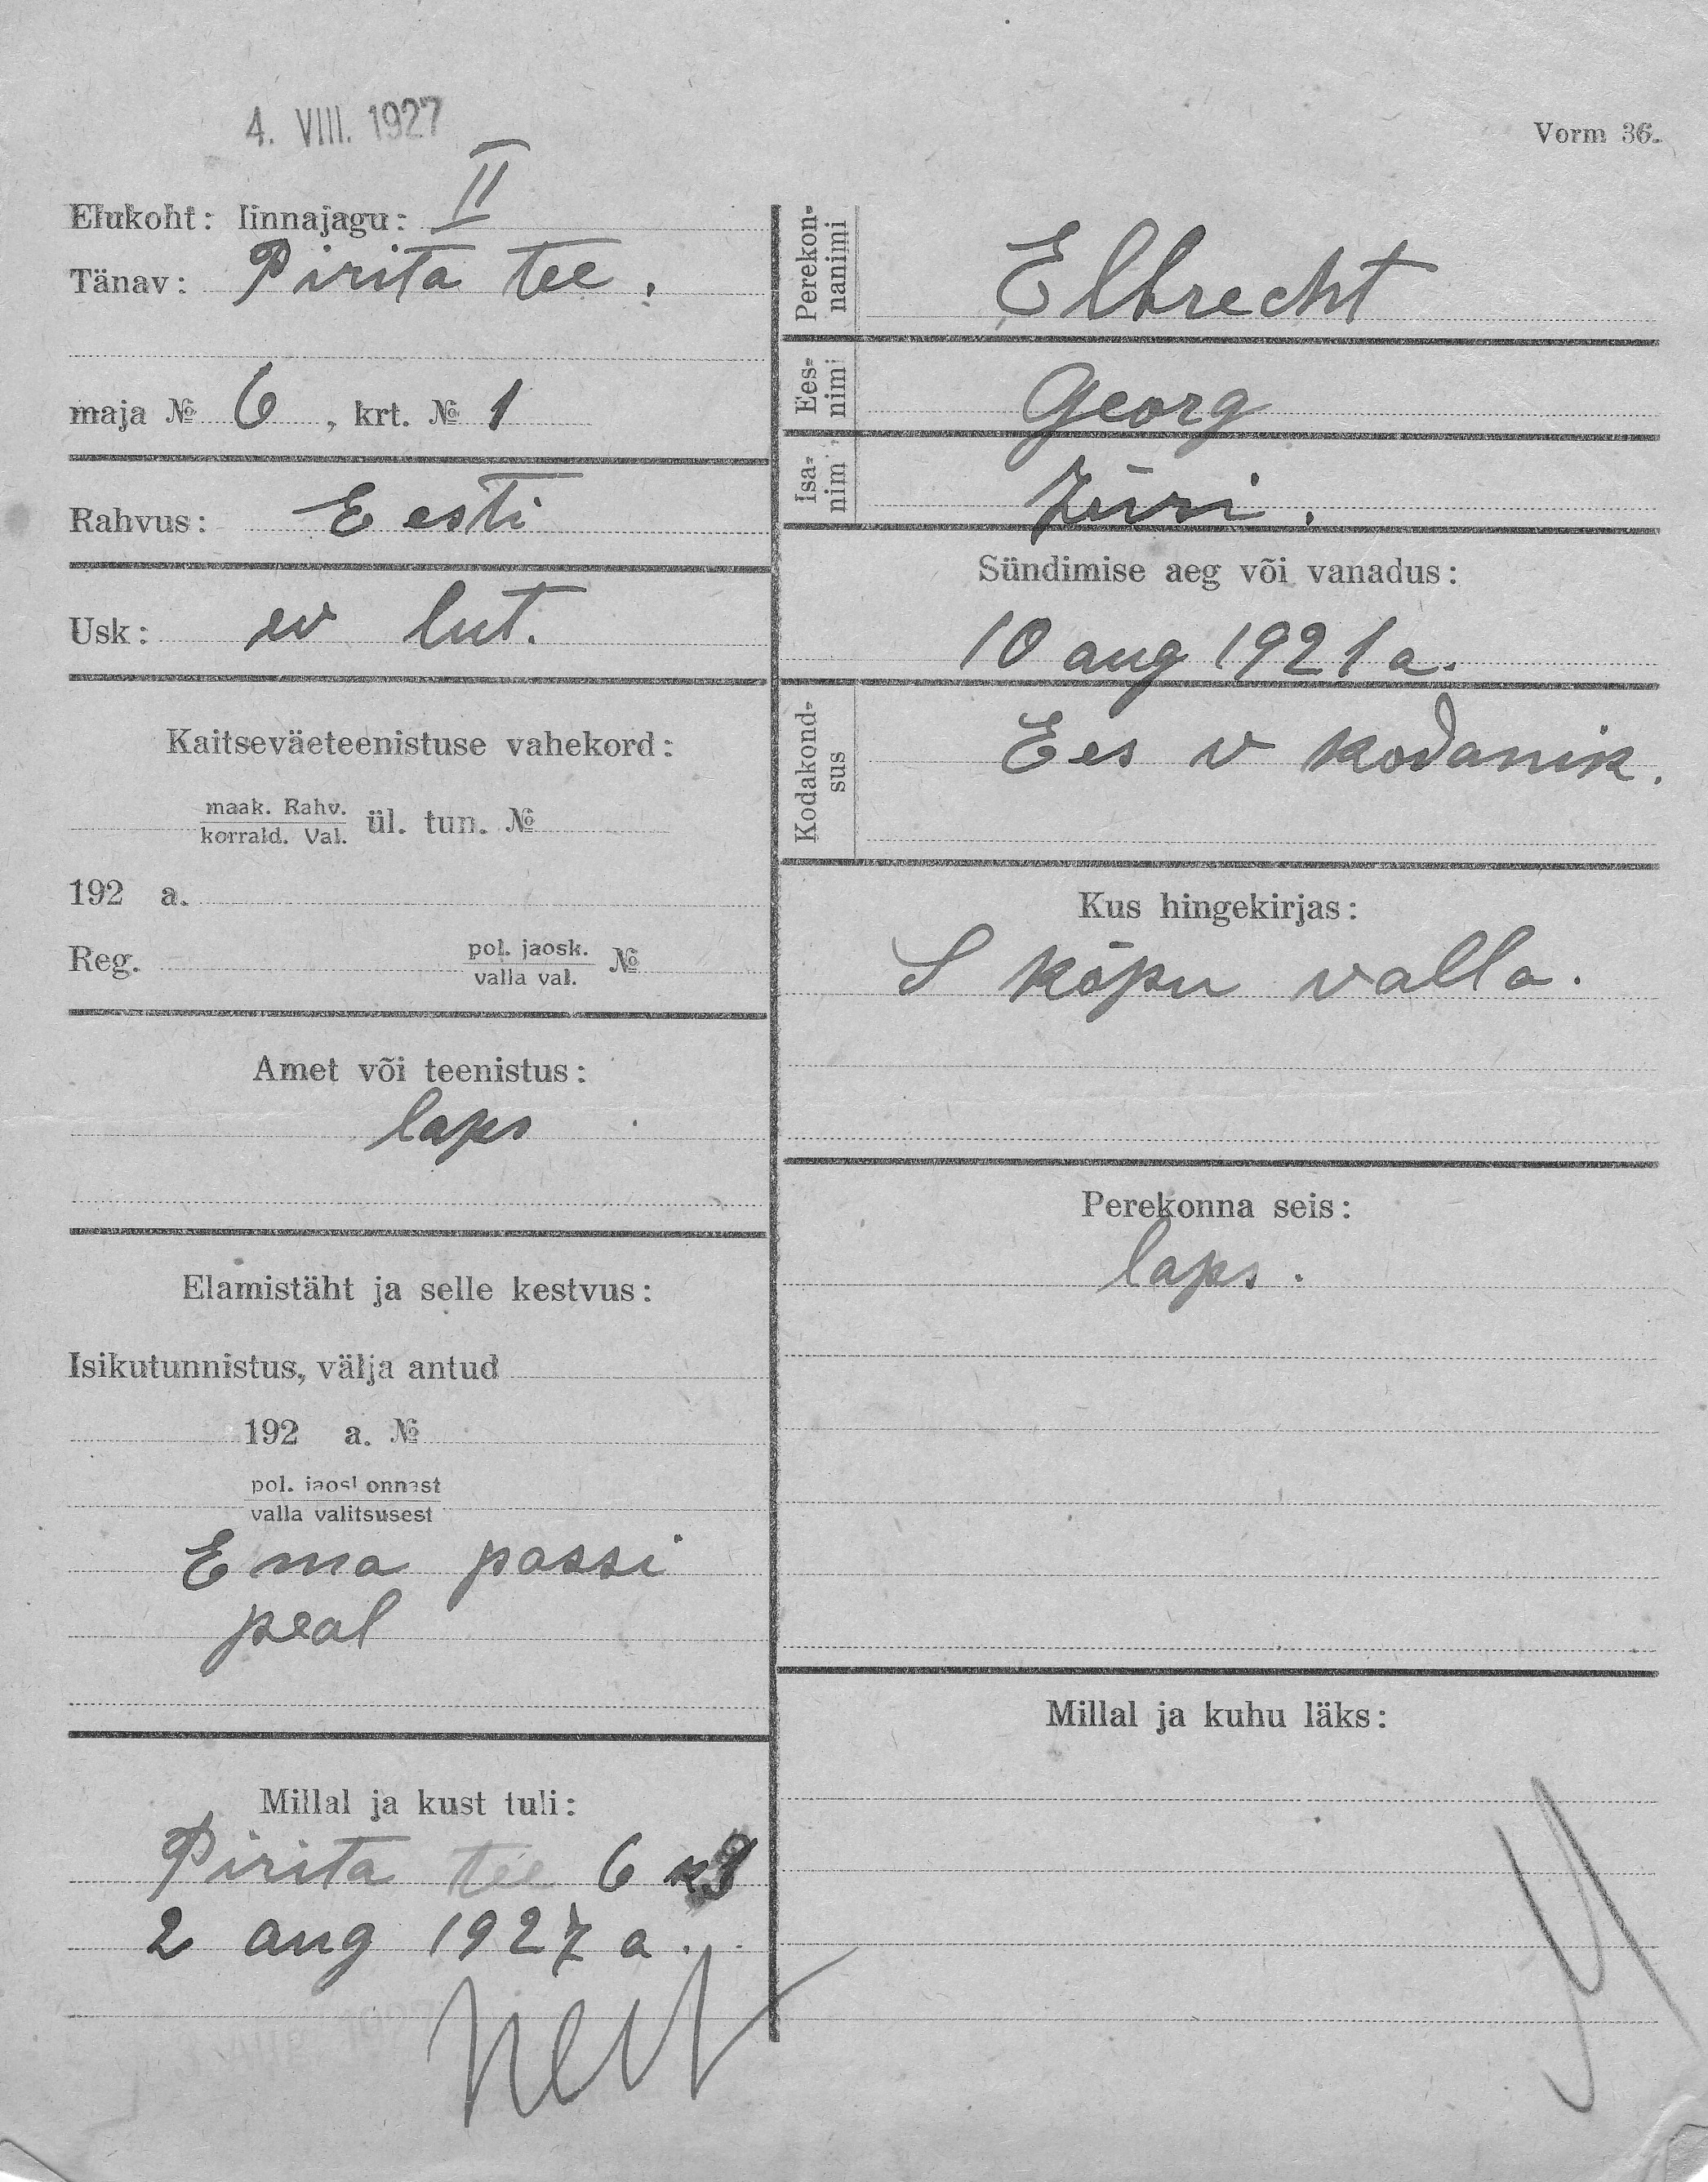 4. VIII. 1927
Vorm 36.
Elukoht: linnajagu: II
Tänav: Pirita tee.
maja № 6, krt. № 1
Rahvus: Eesti
Usk: ev lut.
Kaitseväeteenistuse vahekord:
maak. Rahv.
korrald. Val.
ül. tun. №
192 a.
Reg. pol. jaosk.
valla val. №
Amet või teenistus:
laps
Elamistäht ja selle kestvus:
Isikutunnistus, välja antud
192 a. №
pol. jaoskonnast
valla valitsusest
Ema passi
peal
Millal ja kust tuli:
Pirita tee 6
2 aug 1927 a.
Perekon-
nanimi
Elbrecht
Ees-
nimi
Georg
Isa-
nim
Jüri.
Sündimise aeg või vanadus:
10 aug 1921 a.
Kodakond-
sus
Ees v kodanik.
Kus hingekirjas:
S kõpu valla.
Perekonna seis:
laps.
Millal ja kuhu läks: